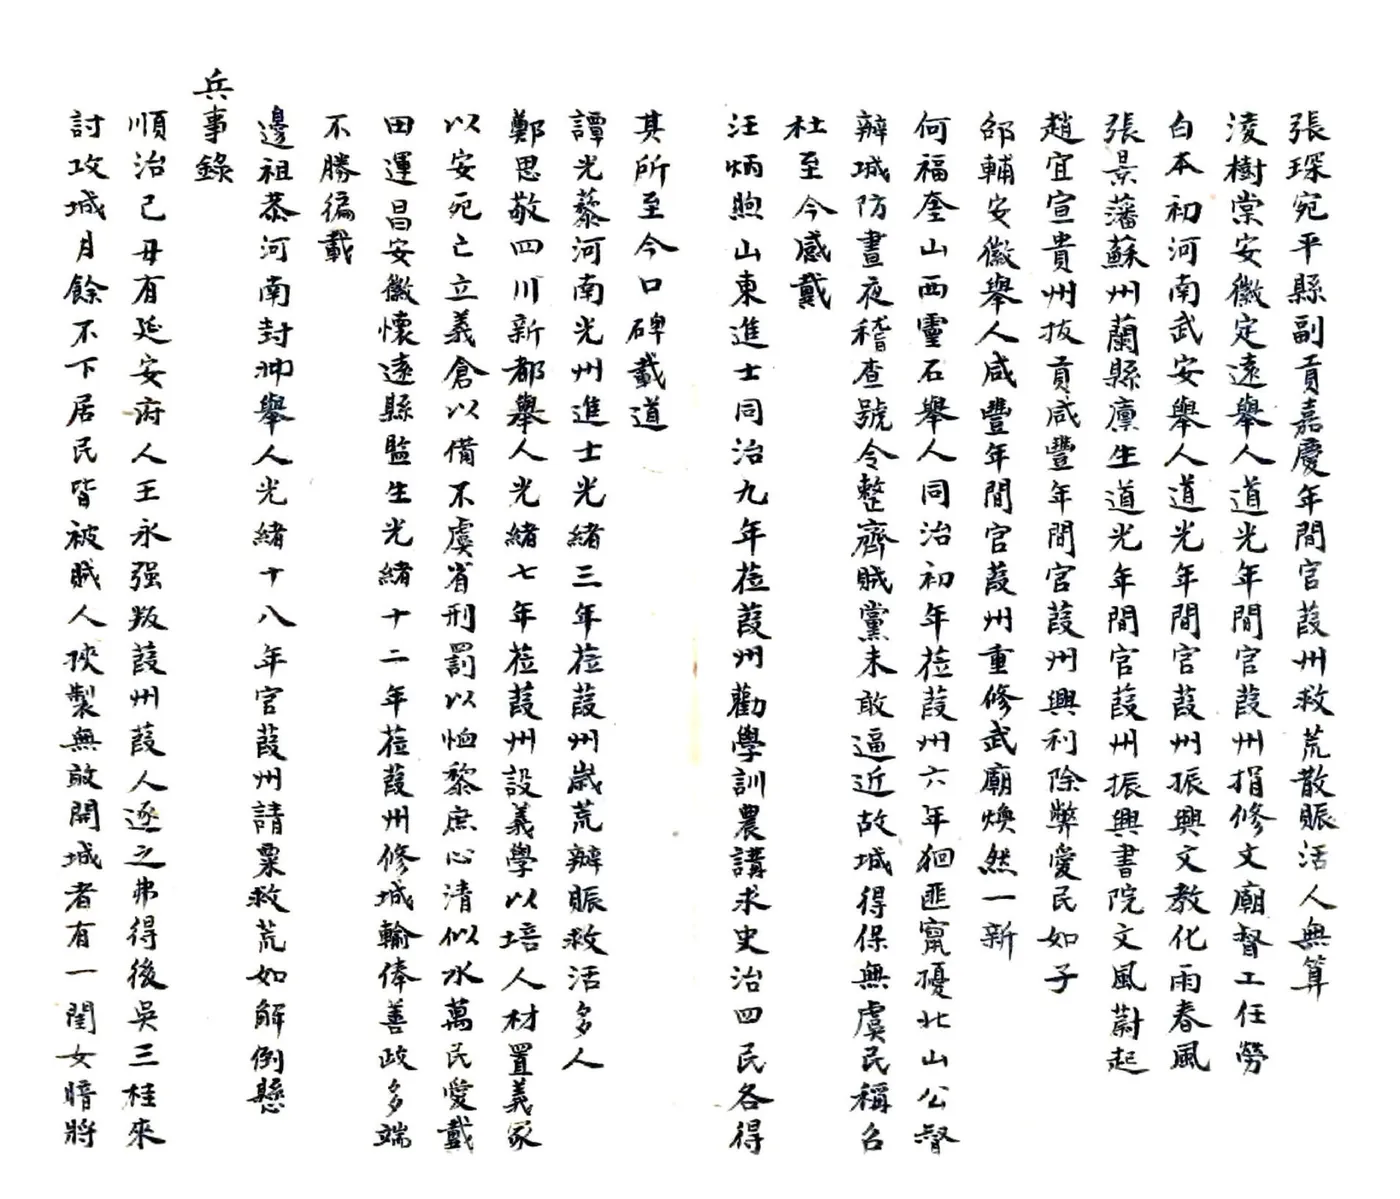 張琛宛平縣副貢嘉慶年間官葭州救荒散賑活人無算
淩樹棠安徽定遠舉人道光年間官葭州捐修文廟督工任勞
白本初河南武安舉人道光年間官葭州振興文教化雨春風
張景藩蘇州蘭縣廩生道光年間官葭州振興書院文風蔚起
趙宜宣貴州拔貢咸豐年間官葭州興利除弊愛民如子
邰輔安徽舉人咸豐年間官葭州重修武廟煥然一新
何福奎山西靈石舉人同治初年莅葭州六年狪匪竄擾北山公督
辦城防晝夜稽查號令整齊賊黨未敢逼近故城得保無虞民稱召
杜至今感戴
汪炳煦山東進士同治九年莅葭州勸學訓農講求史治四民各得
其所至今口碑載道
譚光藜河南光州進士光緒三年莅葭州歲荒辦賑救活多人
鄭思敬四川新都舉人光緒七年莅葭州設義學以培人材置義冢
以安死亡立義倉以備不虞省刑罰以恤黎庶心清似水萬民愛戴
田運昌安徽懷遠縣監生光緒十二年莅葭州修城輸俸善政多端
不勝徧載
邊祖恭河南封邱舉人光緒十八年官葭州請粟救荒如解倒懸
兵事錄
順治己丑有延安府人王永强叛葭州葭人逐之弗得後吳三桂來
討攻城月餘不下居民皆被賊人挾製無敢開城者有一閨女暗將